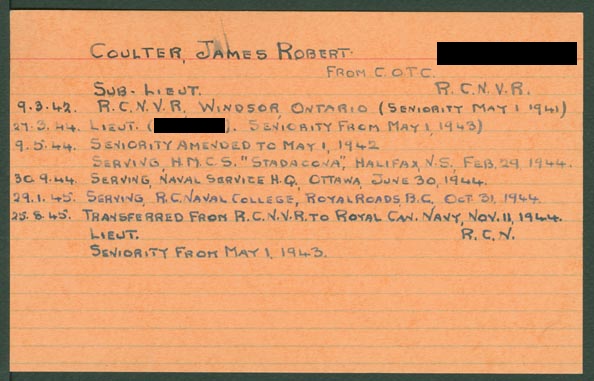 COULTER, JAMES ROBERT.
FROM C.O.T.C.
SUB-LIEUT. R.C.N.V.R.
9.3.42. R.C.N.V.R. WINDSOR, ONTARIO (SENIORITY MAY 1 1941)
27.3.44. LIEUT. ( ). SENIORITY FROM MAY 1, 1943)
9.5.44. SENIORITY AMENDED TO MAY 1, 1942
SERVING, H.M.C.S. "STADACONA", HALIFAX, N.S., FEB. 29, 1944.
30.9.44. SERVING, NAVAL SERVICE H.Q., OTTAWA, JUNE 30, 1944.
29.1.45. SERVING, R.C. NAVAL COLLEGE, ROYAL ROADS, B.C. OCT 31, 1944.
25.8.45. TRANSFERRED FROM R.C.N.V.R. TO ROYAL CAN. NAVY, NOV. 11, 1944.
LIEUT. R.C.N.
SENIORITY FROM MAY 1, 1943.